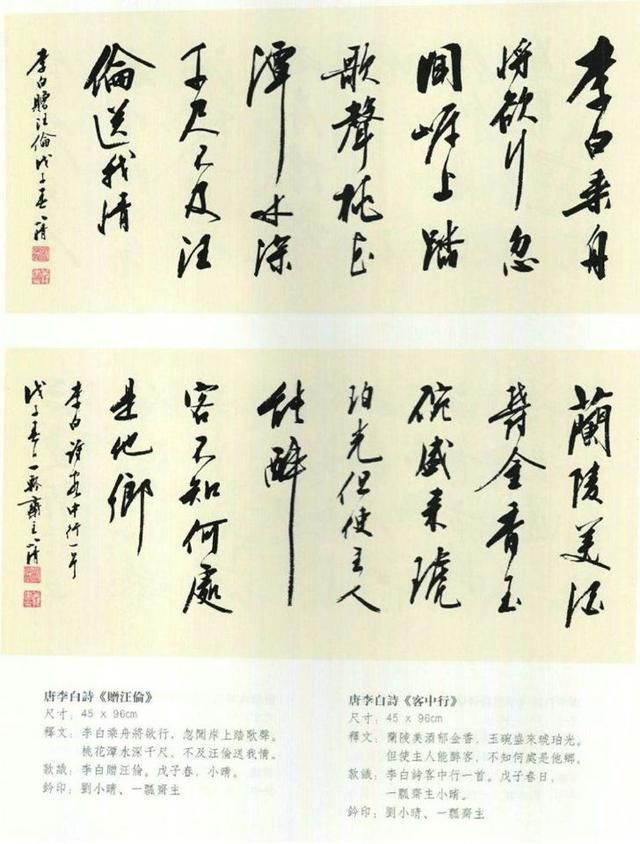 李白乘舟
將欲行忽
聞岸上踏
歌聲桃花
潭水深
千尺不及汪
倫送我情
李白贈汪倫戊子春小晴
蘭陵美酒
鬱金香玉
碗盛來琥
珀光但使主人
能醉
客不知何處
是他鄉
李白詩客中行一首
戊子春日一瓢齋主小晴
唐李白詩《贈汪倫》
尺寸：45 x 96cm
釋文：李白乘舟將欲行，忽聞岸上踏歌聲。
桃花潭水深千尺，不及汪倫送我情。
欵識：李白贈汪倫。戊子春，小晴。
鈐印：劉小晴、一瓢齋主
唐李白詩《客中行》
尺寸：45 x 96cm
釋文：蘭陵美酒郁金香，玉碗盛來琥珀光。
但使主人能醉客，不知何處是他鄉。
欵識：李白詩客中行一首。戊子春日，
一瓢齋主小晴。
鈐印：劉小晴、一瓢齋主